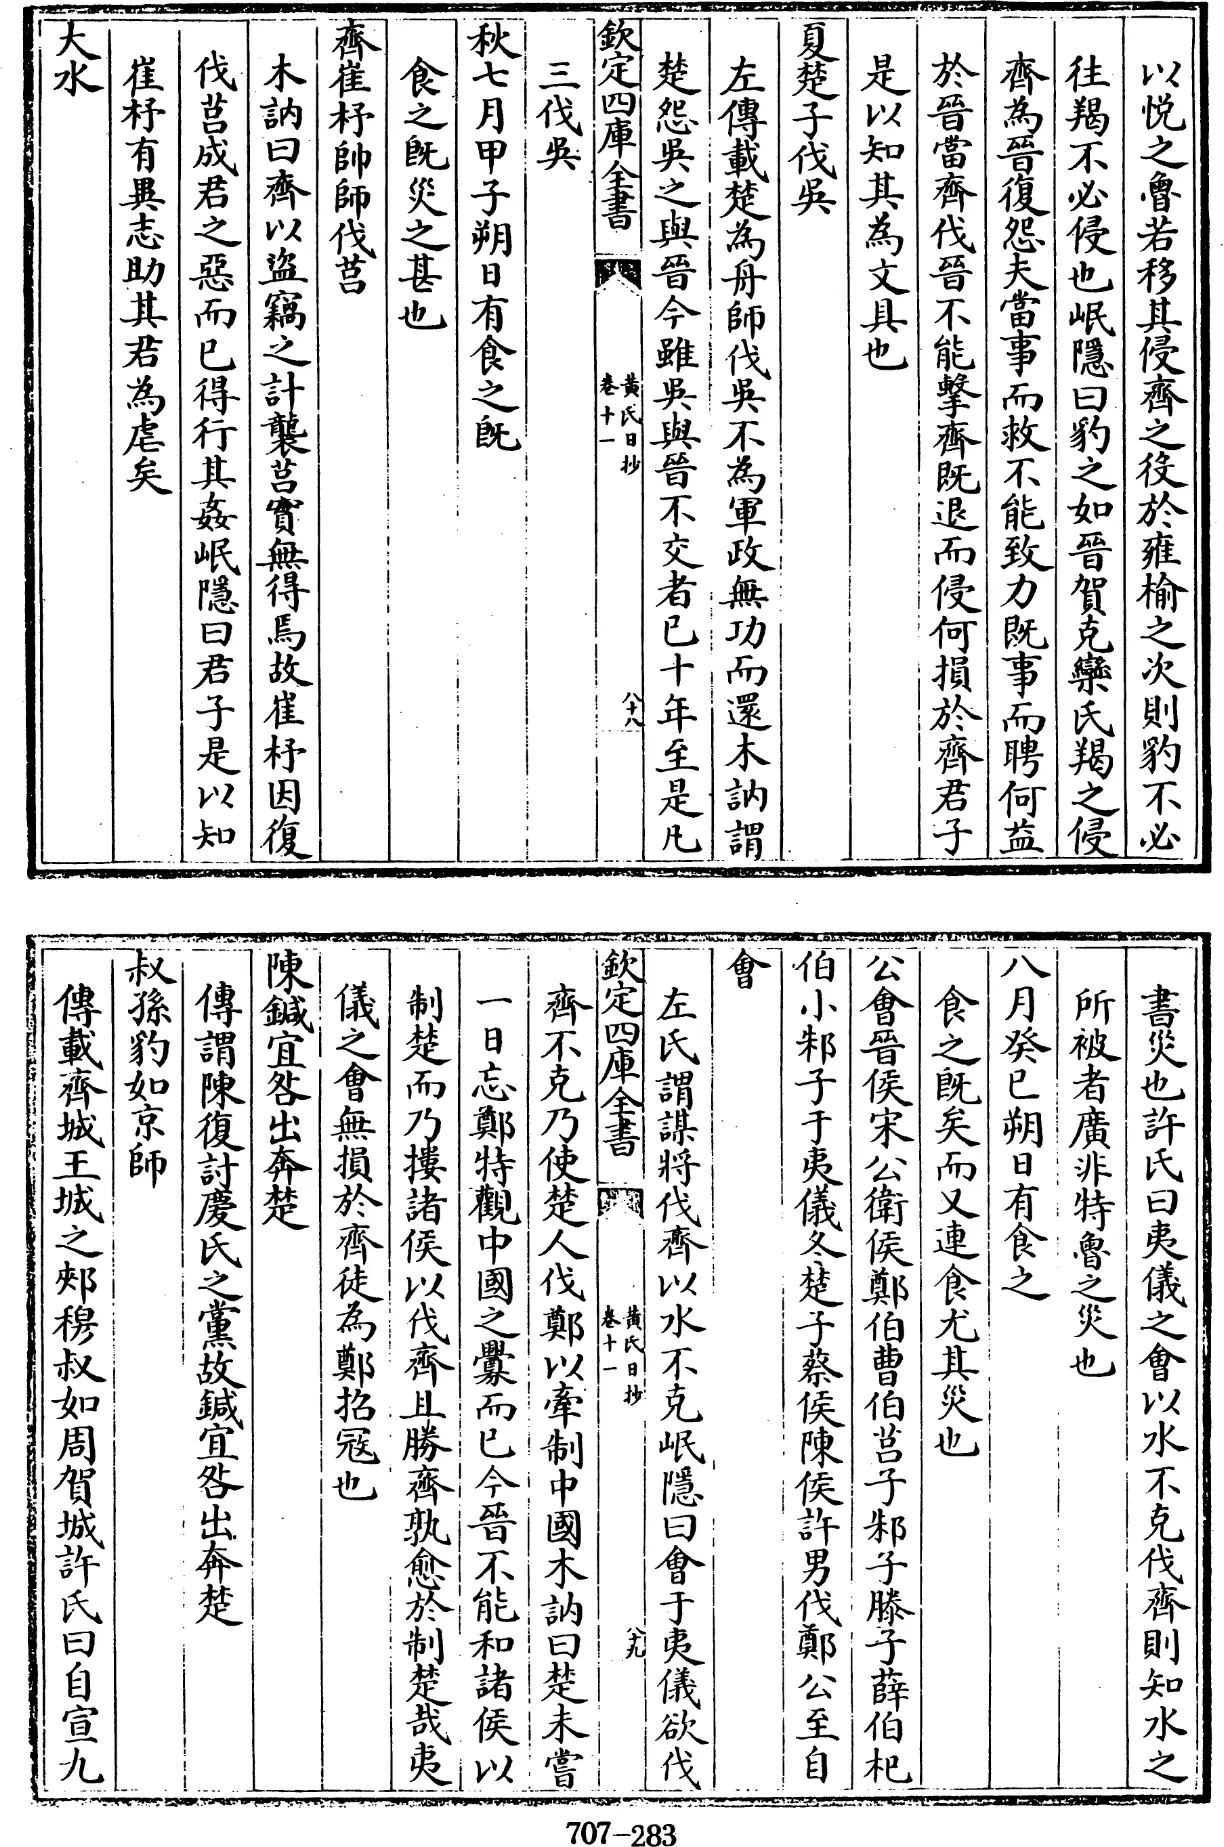 以悦之魯若移其侵齊之役於雍榆之次則豹不必
往羯不必侵也岷隠曰豹之如晉賀克欒氏羯之侵
齊為晉復怨夫當事而救不能致力既事而聘何益
於晉當齊伐晉不能擊齊既退而侵何損於齊君子
是以知其為文具也
夏楚子伐吳
左傳載楚為舟師伐吳不為軍政無功而還木訥謂
楚怨吳之與晉今雖吳與晉不交者已十年至是凡
欽定四庫全書
黃氏日抄
卷十一
八十八
三伐吳
秋七月甲子朔日有食之既
食之既災之甚也
齊崔杼帥師伐莒
木訥曰齊以盜竊之計襲莒實無得焉故崔杼因復
伐莒成君之惡而已得行其姦岷隠曰君子是以知
崔杼有異志助其君為虐矣
大水
書災也許氏曰夷儀之會以水不克伐齊則知水之
所被者廣非特魯之災也
八月癸巳朔日有食之
食之既矣而又連食尤其災也
公會晉侯宋公衛侯鄭伯曹伯莒子邾子滕子薛伯杞
伯小邾子于夷儀冬楚子蔡侯陳侯許男伐鄭公至自
會
左氏謂謀將伐齊以水不克岷隠曰會于夷儀欲伐
欽定四庫全書
黃氏日抄
卷十一
八十九
齊不克乃使楚人伐鄭以牽制中國木訥曰楚未嘗
一日忘鄭特觀中國之釁而已今晉不能和諸侯以
制楚而乃摟諸侯以伐齊且勝齊孰愈於制楚哉夷
儀之會無損於齊徒為鄭招冦也
陳鍼宜咎出奔楚
傳謂陳復討慶氏之黨故鍼宜咎出奔楚
叔孫豹如京師
傳載齊城王城之郟穆叔如周賀城許氏曰自宣九
707-283